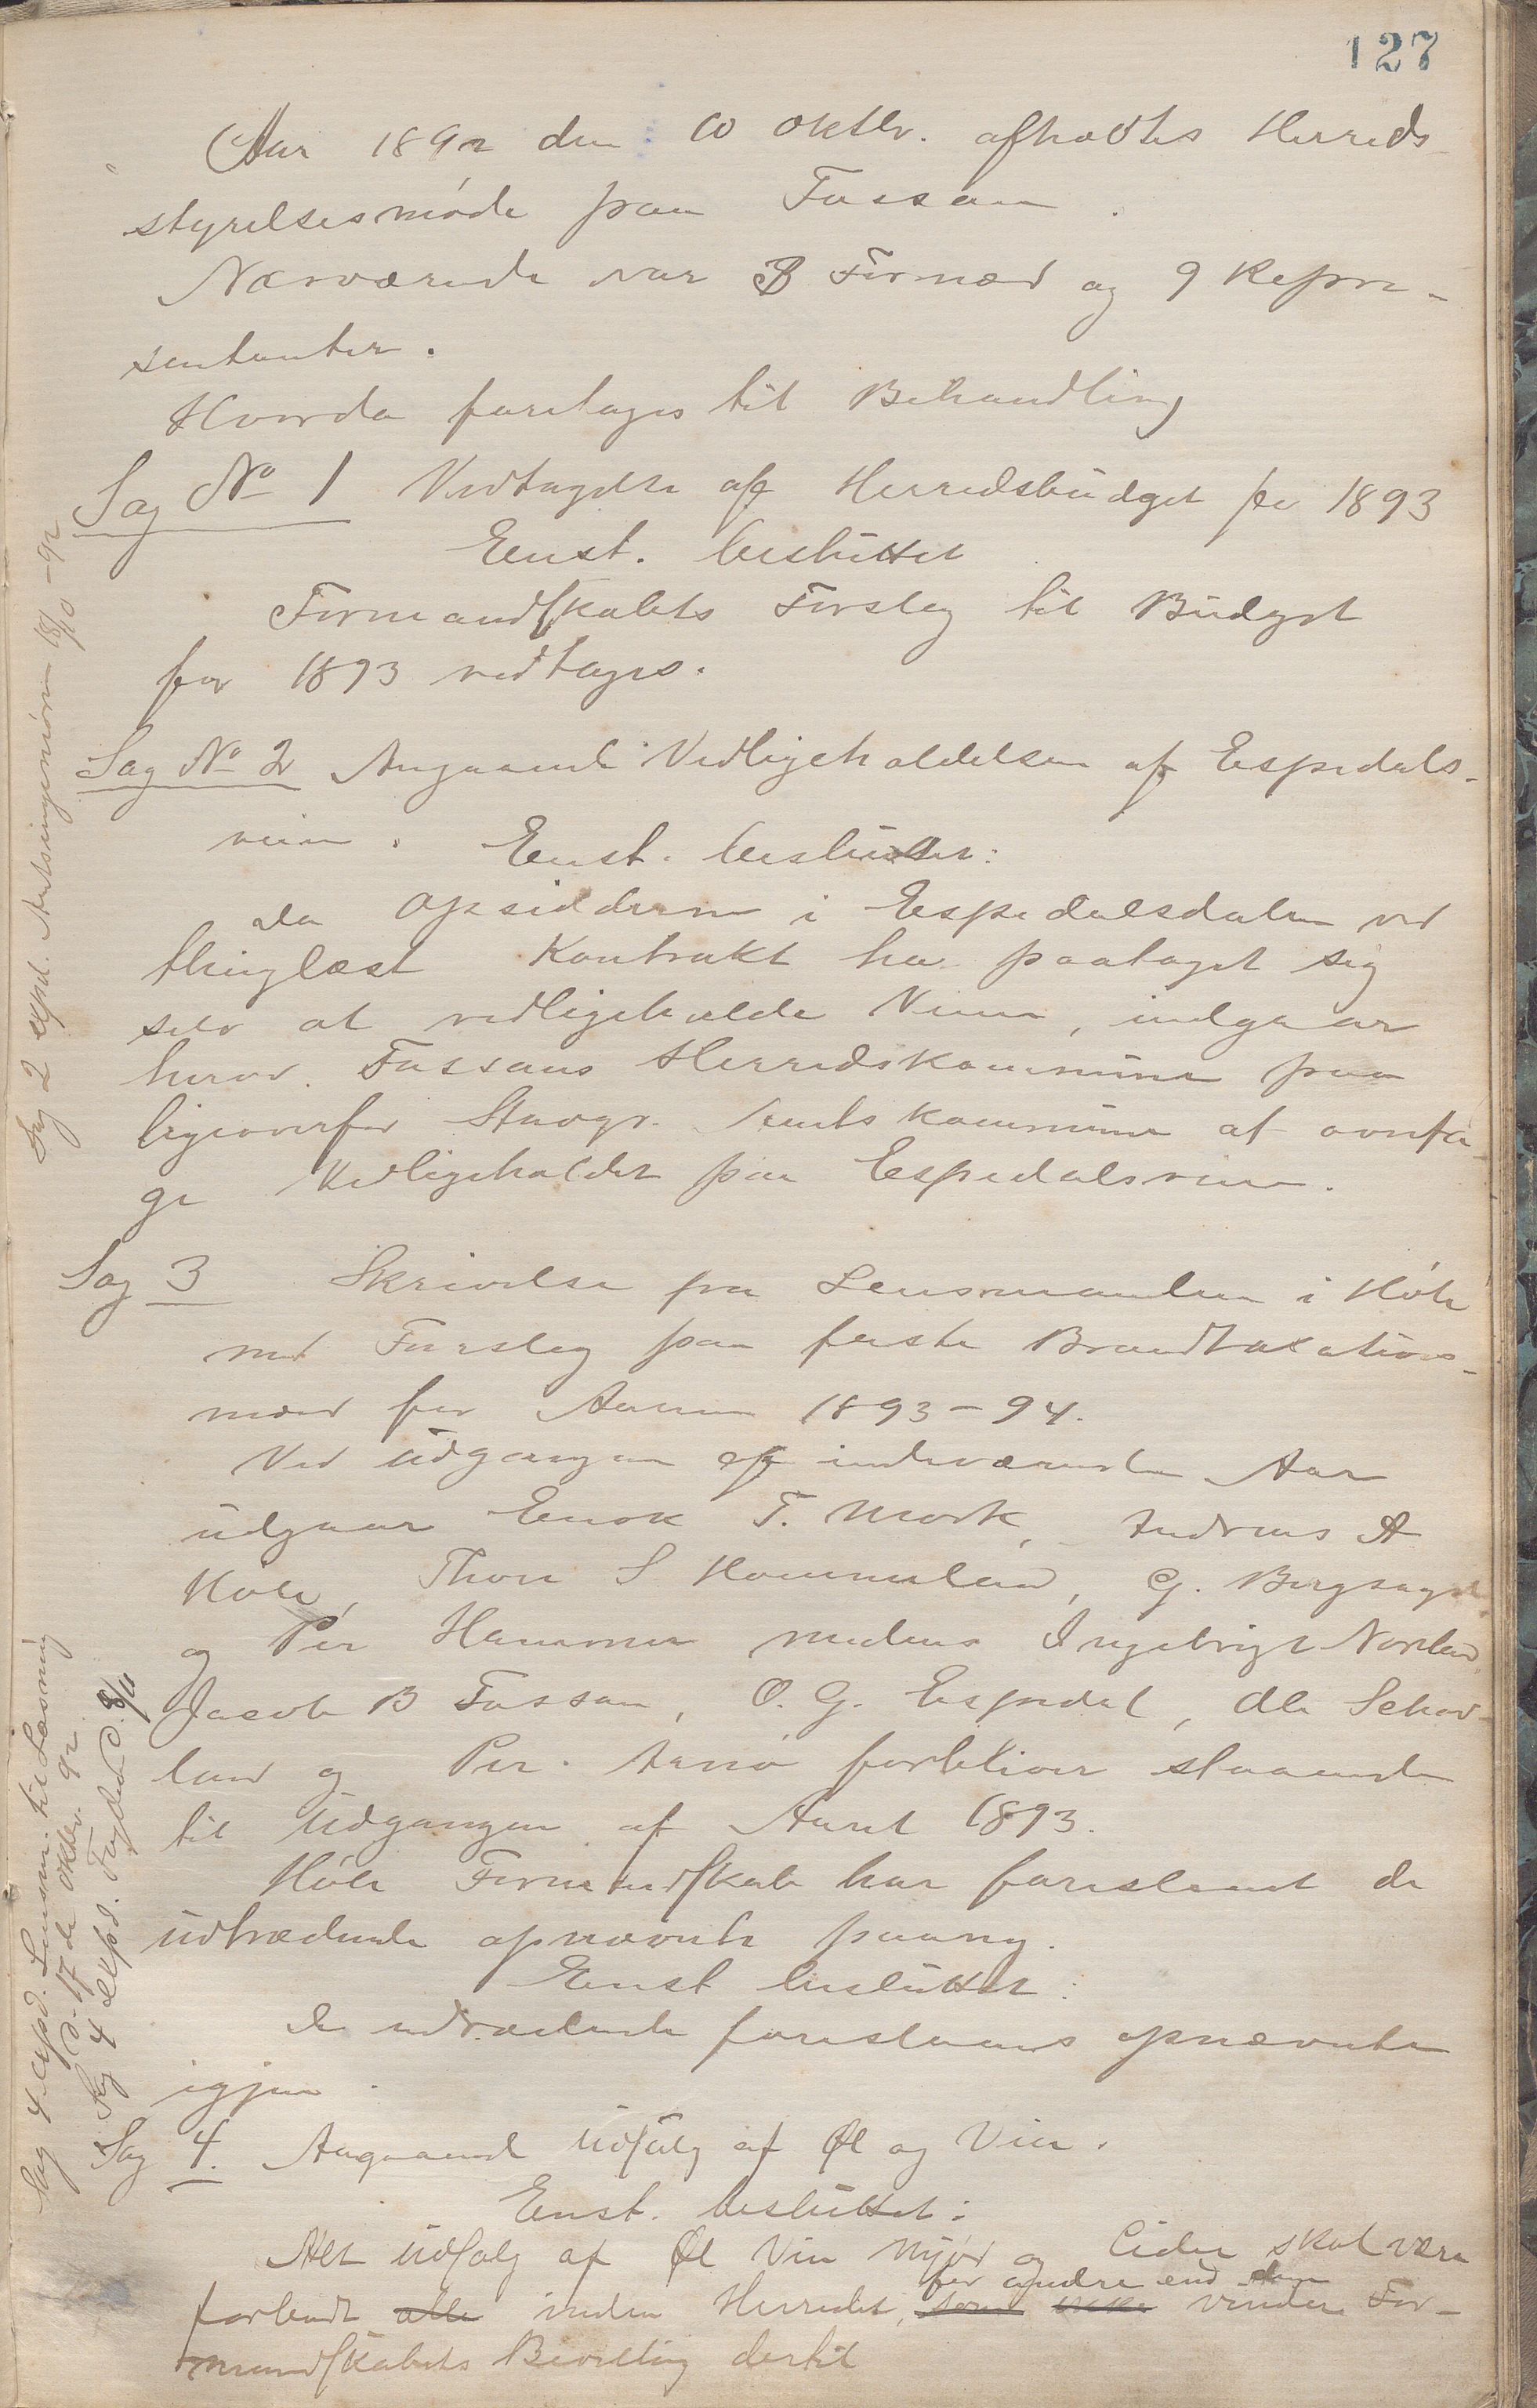 127
Aar 1892 den 10 oktbr. afholdtes Herreds
styrelsesmøde paa Fossan.
Nærværende var 3 Formænd og 9 Repræ-
sentanter.
Hvorda foretages til Behandling
Sag No 1 Vedtagelse af Herredsbudget for 1893
Enst. besluttet
Formandskabets Forslag til Budget
for 1893 vedtages.
Sag No 2 Angaaende Vedligeholdelsen af Espedals-
veien. Enst. besluttet:
Da Opsidderne i Espedalsdalen ved
thinglæst Kontrakt har paataget sig
selv at vedligeholde Veien, indgaar
herov. Fossans Herredskommune paa
ligeoverfor Stavgr. Amtskommune at overta-
ge Vedligeholdet paa Espedalsveien.
Sag 3 Skrivelse fra Lensmanden i Høle
med Forslag paa faste Brandtaxations-
mænd for Aarene 1893-94.
Ved Udgangen af indeværende Aar
udgaar Enok T. Mørk, Andreas A
Høle, Thore S Hommeland, G. Bergsagel
og Per Hammer medens Ingebrigt Norland
Jacob B Fossan, O. G. Espedal, Ole Sehav-
land og Per. Arnø forbliver staaende
til Udgangen af Aaret 1893.
Høle Formandskab har foreslaaet de
udtrædende opnævnte paany.
Enst besluttet:
De udtrædende foreslaaes opnævnte
igjen.
Sag 4. Angaaende Udsalg af Øl og Vin.
Enst. besluttet:
Alt Udsalg af Øl Vin Mjød og Cider skal være
for andre end dem
forbudt alle inden Herredet, som ikke vinder For-
mandskabets Bevilling dertil
Sag 2 expd. Amtsingeniøren 18/10-92
Sag 4. expd. Lensm. til Læsning
d. 17de oktbr. 92
Sag 4 expd. Fogden d. 8/11